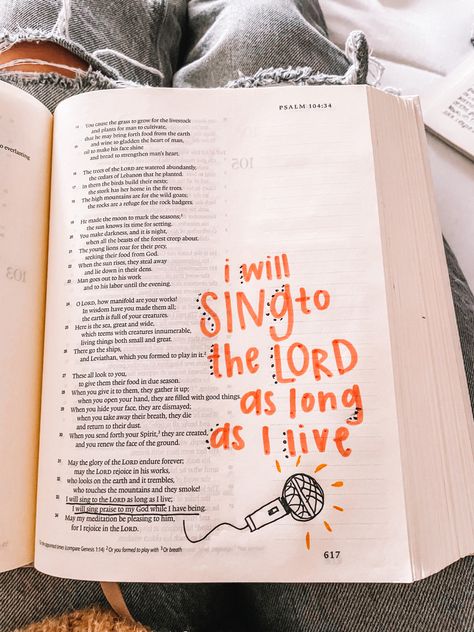 to everlasting
PSALM 104:34
14 You cause the grass to grow for the livestock
and plants for man to cultivate,
that he may bring forth food from the earth
15 and wine to gladden the heart of man,
oil to make his face shine
and bread to strengthen man's heart.
16 The trees of the LORD are watered abundantly,
the cedars of Lebanon that he planted.
17 In them the birds build their nests;
the stork has her home in the fir trees.
18 The high mountains are for the wild goats;
the rocks are a refuge for the rock badgers.
19 He made the moon to mark the seasons;¹
the sun knows its time for setting.
20 You make darkness, and it is night,
when all the beasts of the forest creep about.
21 The young lions roar for their prey,
seeking their food from God.
22 When the sun rises, they steal away
and lie down in their dens.
23 Man goes out to his work
and to his labor until the evening.
24 O LORD, how manifold are your works!
In wisdom have you made them all;
the earth is full of your creatures.
25 Here is the sea, great and wide,
which teems with creatures innumerable,
living things both small and great.
26 There go the ships,
and Leviathan, which you formed to play in it.²
27 These all look to you,
to give them their food in due season.
28 When you give it to them, they gather it up;
when you open your hand, they are filled with good things.
29 When you hide your face, they are dismayed;
when you take away their breath, they die
and return to their dust.
30 When you send forth your Spirit,³ they are created,
and you renew the face of the ground.
31 May the glory of the LORD endure forever;
may the LORD rejoice in his works,
32 who looks on the earth and it trembles,
who touches the mountains and they smoke!
33 I will sing to the LORD as long as I live;
I will sing praise to my God while I have being.
34 May my meditation be pleasing to him,
for I rejoice in the LORD.
appointed times (compare Genesis 1:14) ² Or you formed to play with ³ Or breath
i will
SINg to
the LORD
as long
as I live
617